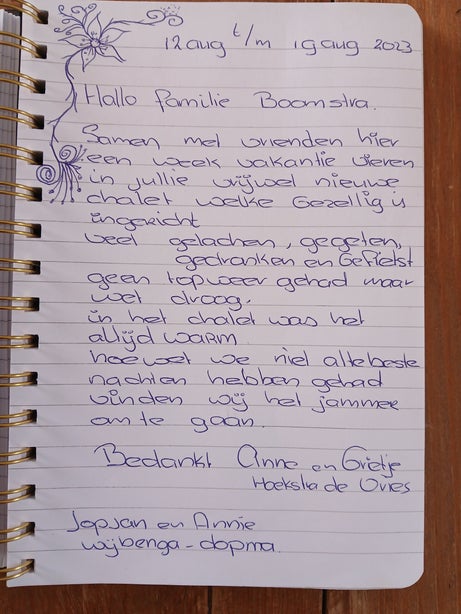 12 aug t/m 19 aug 2023
Hallo familie Boomstra.
Samen met vrienden hier
een week vakantie vieren
in jullie vrijwel nieuwe
chalet welke Gezellig is
ingericht
veel gelachen, gegeten,
gedranken en Gefietst
geen topweer gehad maar
wel droog.
in het chalet was het
altijd warm
hoewel we niet alle beste
nachten hebben gehad
vinden wij het jammer
om te gaan.
Bedankt Anne en Grietje
Hoekstra de Vries
Jopjan en Annie
wijbenga-dopma.